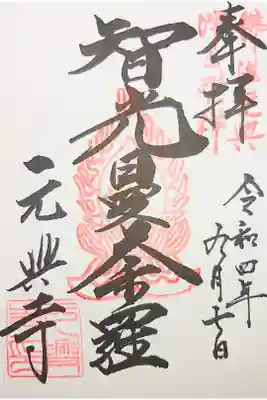 奉拝
令和四年
九月十七日
智光曼荼羅
元興寺